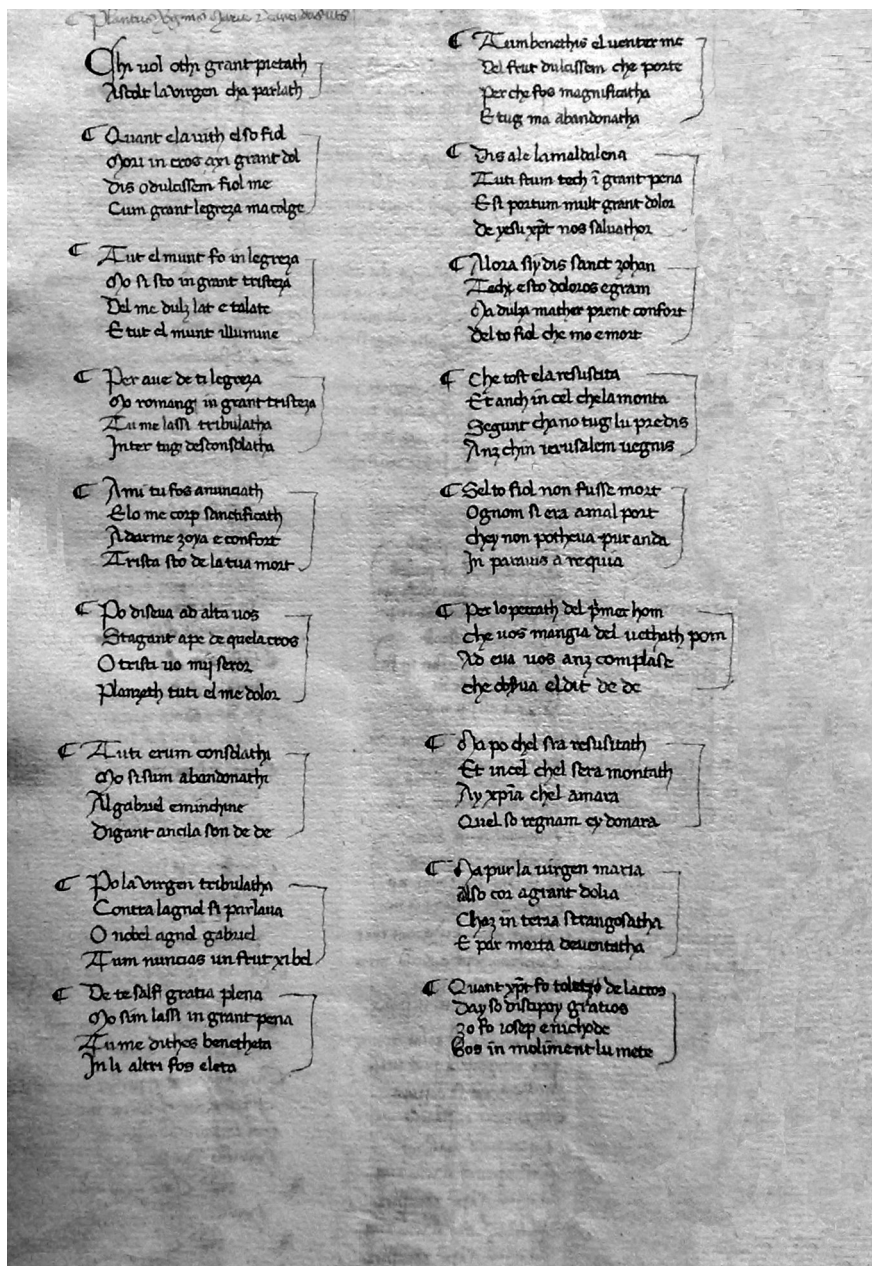 Plantus
Chi uol othi grant pietath
Ascolt la virgen cha parlath
Quant ela vith el so fiol
Mori in cros axi grant dol
Dis o dulcissem fiol me
Cum grant legreza ma colge
Tut el munt fo in legreza
Mo si sto in grant tristeza
Del me dulz lat e talate
E tut el munt illumine
Per aue de ti legreza
Mo romangi in grant tristeza
Tu me lassi tribulatha
Inter tug desconsolatha
Ami tu fos anunciath
E lo me corp sanctificath
A darme zoya e confort
Trista sto de la tua mort
Po diseua ad alta uos
Stagant ape de quela cros
O tristi uo mij seror
Planzeth tuti el me dolor
Tuti erum consolathi
Mo si sum abandonathi
Al gabriel eminchine
Digant ancila son de de
Po la virgen tribulatha
Contra lagnol si parlaua
O nobel agnol gabriel
Tum nuncias un frut xi bel
De te salf gratia plena
Mo sim lassi in grant pena
Tu me dithes benetheta
In li altri fos eleta
Tum benethis el uenter me
Del frut dulcissem che porte
Per che fos magnificatha
E tug ma abandonatha
Dis ale la maldalena
Tuti stum tech ī grant pena
E si portum mult grant dolor
De yesu xp̄t nos saluathor
Alora siy dis sanct zohan
Techx esto doloros e gram
Ma dulza mather prent confort
Del to fiol che mo e mort
Che tost ela resustita
Et anch in cel chel a monta
Segunt cha no tug lu predis
Anz chin ierusalem uegnis
Sel to fiol non fusse mort
Ognom si era a mal port
Chey non potheua pur anda
In parauis a requia
Per lo peccath del p̄mer hom
che uos mangia del uethath pom
Ad eua uos anz complase
che obserua el dit de de
Ma po chel sra resusitath
Et in cel chel sera montath
Ay xp̄ia chel amara
Quel so regnam ey donara
Ma pur la uirgen maria
Al so cor a grant dolia
Chaz in terra strangosatha
E par morta deuentatha
Quant xp̄t fo tolegio de la cros
Day so discipoy gratios
Zo fo iosep e nichode
Cos in moliment lu mete